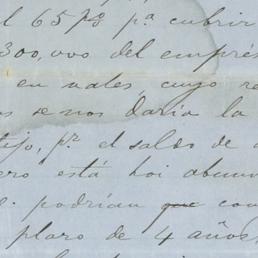 l 65 p% pª cubrir
300,000 del emprés
en vales, cuyo re
os se nos daria la
tejo, pr. el saldo de
ero está hoi abun
e. podrian que con
plazo de 4 años,